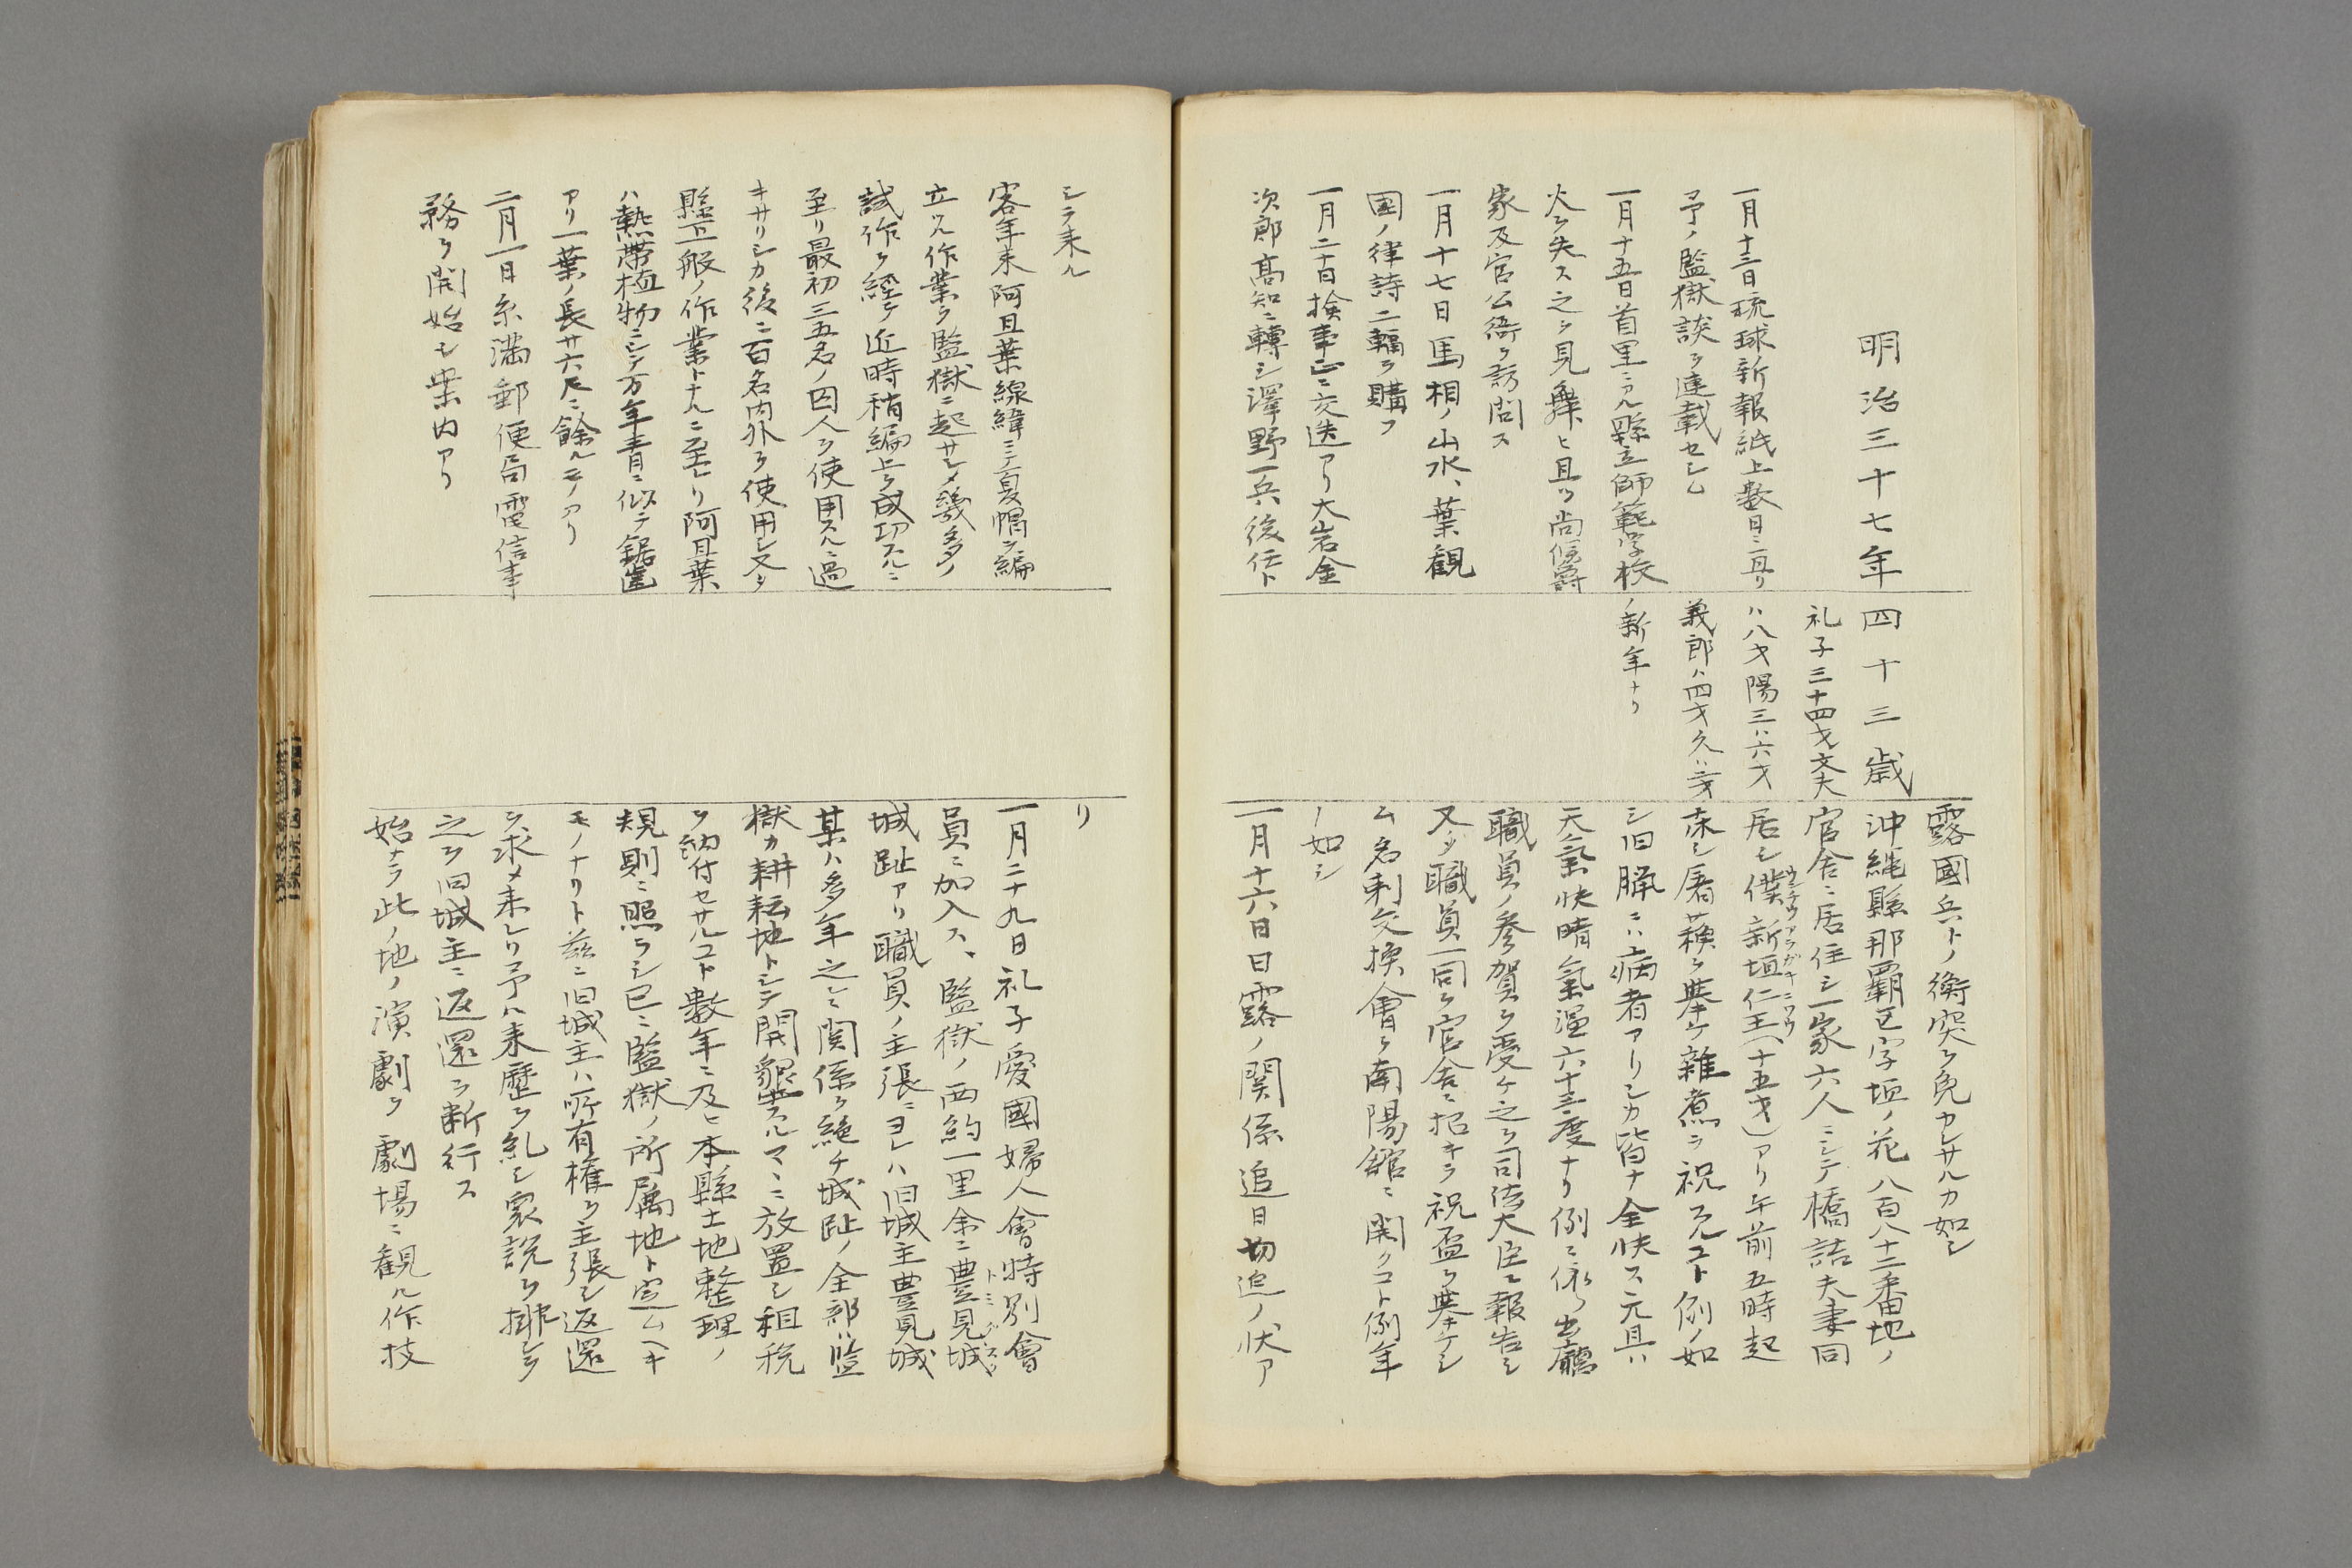 明治三十七年 四十三歳
一月十三日琉球新報紙上数日ニ亘リ
予ノ監獄談ヲ連載セシム
一月十五日首里ニアル縣立師範学校
火ヲ失ス之ヲ見舞ヒ且ツ尚侯爵
家及官公衙ヲ訪問ス
一月十七日馬相ノ山水、葉観
國ノ律詩二幅ヲ購フ
一月二十日検事正ニ交迭アリ大岩金
次郎高知ニ轉シ澤野一兵後任ト
礼子三十四才文夫
ハ八才陽三ハ六才
義郎ハ四才久ハ二才
ノ新年ナリ
露國兵トノ衝突ヲ免カレサルカ如シ
沖縄縣那覇区字垣ノ花八百八十二番地ノ
官舎ニ居住シ一家六人ニシテ橋詰夫妻同
居シ僕新垣仁王(十五才)アリ午前五時起
ウンチウアラガキニワウ
床シ屠蘇ヲ挙ケ雑煮ヲ祝フコト例ノ如
シ旧臘ニハ病者アリシカ皆ナ全快ス元旦ハ
天氣快晴氣温六十三度ナリ例ニ依リ出廳
職員ノ参賀ヲ受ケ之ヲ司法大臣ニ報告シ
又タ職員一同ヲ官舎ニ招キテ祝盃ヲ挙ケシ
ム名刺交換會ヲ南陽舘ニ開クコト例年
ノ如シ
一月十六日日露ノ関係追日切迫ノ状ア
シテ来ル
客年来阿旦葉線緯ニテ夏帽ヲ編
立ツル作業ヲ監獄ニ起サシメ幾多ノ
試作ヲ経テ近時稍編上ヲ成功スルニ
至リ最初三五名ノ囚人ヲ使用スルニ過
キサリシカ後ニ百名内外ヲ使用シ又タ
縣下一般ノ作業トナルニ至レリ阿旦葉
ハ熱帯植物ニシテ万年青ニ似テ鋸歯
アリ一葉ノ長サ六尺ニ餘ルモノアリ
二月一日糸満郵便局電信事
務ヲ開始シ案内アリ
リ
一月二十九日礼子愛國婦人會特別會
員ニ加入ス、監獄ノ西約一里余ニ豊見城
トミグスク
城趾アリ職員ノ主張ニヨレハ旧城主豊見城
某ハ多年之レニ関係ヲ絶チ城趾ノ全部ハ監
獄カ耕耘地トシテ開墾スルマヽニ放置シ租税
ヲ納付セサルコト数年ニ及ヒ本縣土地整理ノ
規則ニ照ラシ已ニ監獄ノ所属地ト定ムヘキ
モノナリト茲ニ旧城主ハ所有権ヲ主張シ返還
ヲ求メ来レリ予ハ来歴ヲ糺シ衆説ヲ排シテ
之ヲ旧城主ニ返還ヲ断行ス
始テ此ノ地ノ演劇ヲ劇場ニ観ル作技